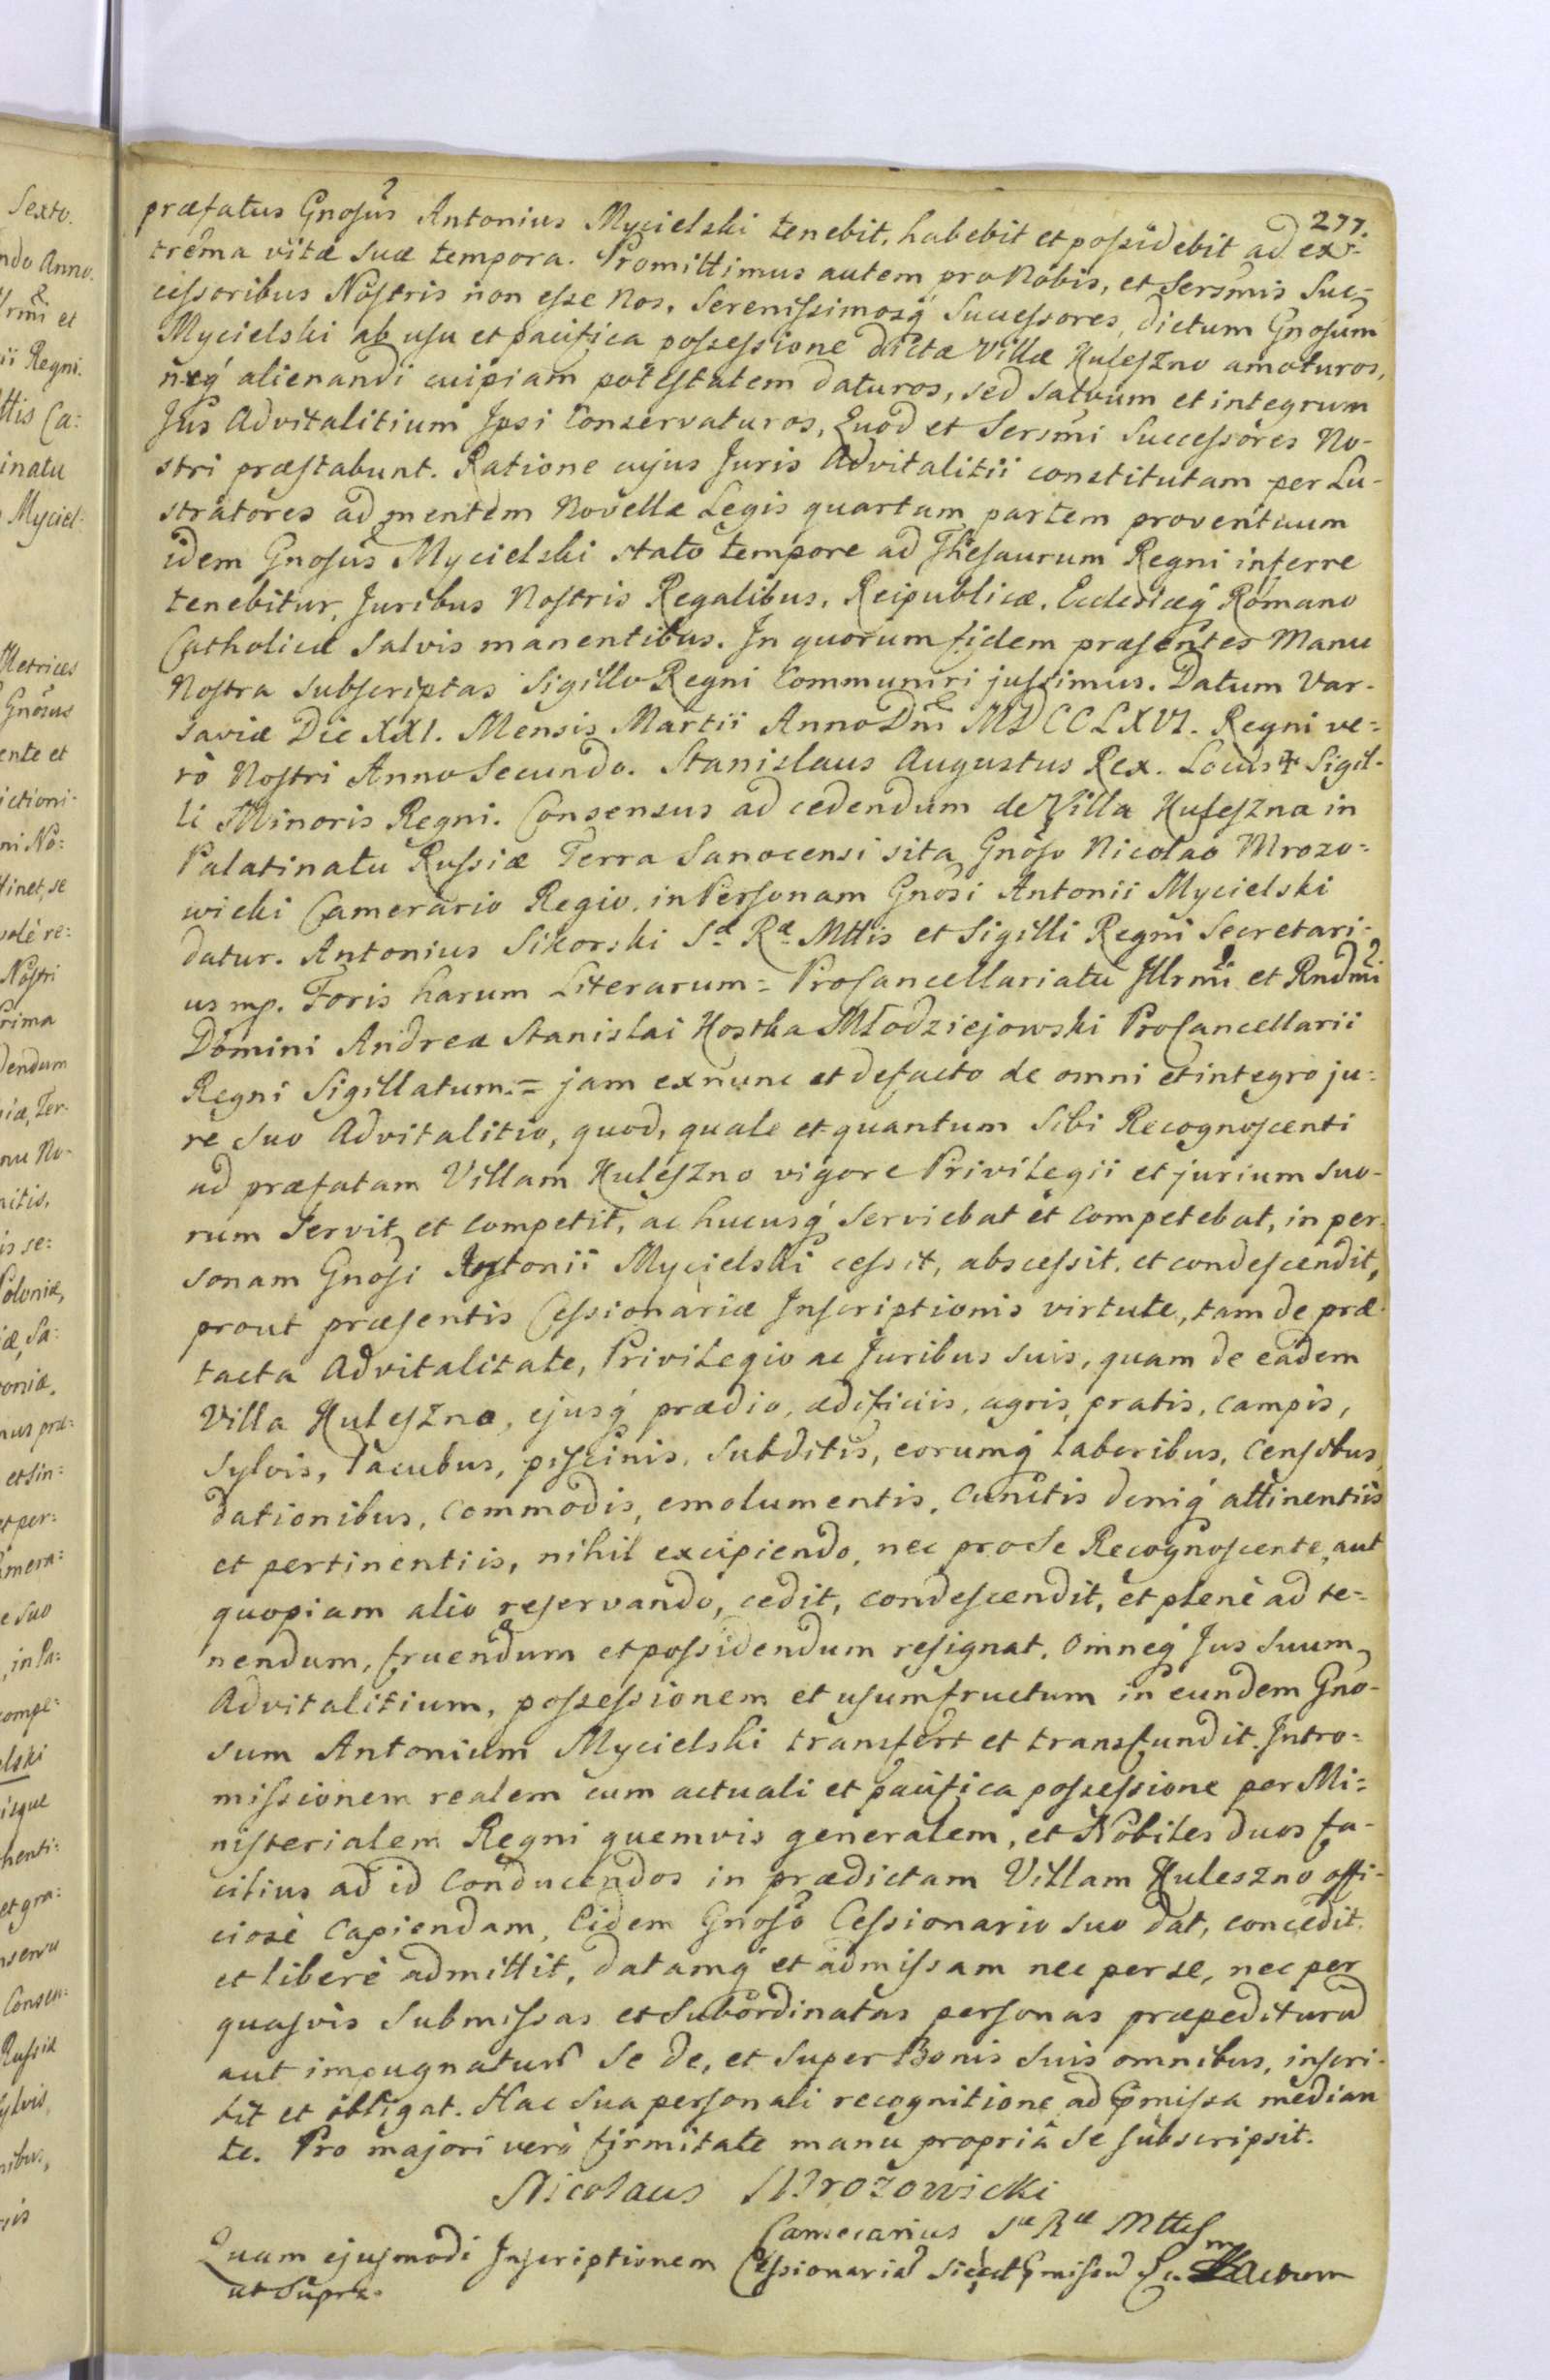 277.
præfatus Gnosus Antonius Mycielski tenebit, habebit et possidebit ad ex-
trema vitæ suæ tempora. Promittimus autem pro Nobis, et Sersmis Suc-
cessoribus Nostris non esse Nos, Serenissimosq́ Successores, dictum Gnosum
Mycielski ab usu et pacifica possessione dictæ Villæ Huleszno amoturos,
neq́ alienandi cuipiam potestatem daturos, sed salvum et integrum
Jus Advitalitium Ipsi Conservaturos, Quod et Sersmi Successores No-
stri præstabunt. Ratione cujus Juris Advitalitii constitutam per Lu-
stratores ad mentem Novellæ Legis quartam partem proventuum
idem Gnosus Mycielski stato tempore ad Thesaurum Regni inferre
tenebitur, Juribus Nostris Regalibus, Reipublicæ, Ecclesiæq́ Romano
Catholicæ salvis manentibus. In quorum fidem præsentes Manu
Nostra subscriptas Sigillo Regni Communiri jussimus. Datum Var-
saviæ Die XXI. Mensis Martii Anno Dni MDCCLXVI. Regni ve=
rò Nostri Anno Secundo. Stanislaus Augustus Rex. Locus ✝ Sigil-
li Minoris Regni. Consensus ad cedendum de Villa Huleszna in
Palatinatu Russiæ Terra Sanocensi sita Gnoso Nicolao Mrozo=
wicki Camerario Regio, in Personam Gnosi Antonii Mycielski
datur. Antonius Sikorski Sæ Ræ Mttis et Sigilli Regni Secretari-
us mp. Foris harum Literarum = Procancellariatu Illrmi et Rndmi
Domini Andreæ Stanislai Kostka Młodziejowski Procancellarii
Regni Sigillatum. = jam exnunc et defacto de omni et integro ju=
re suo Advitalitio, quod, quale et quantum Sibi Recognoscenti
ad præfatam Villam Huleszno vigore Privilegii et jurium suo-
rum servit et competit, ac hucusq́ serviebat et competebat, in per-
sonam Gnosi Antonii Mycielski cessit, abscessit, et condescendit,
prout præsentis Cessionariæ Inscriptionis virtute, tam de præ-
tacta Advitalitate, Privilegio ac Juribus suis, quam de eadem
Villa Huleszno, ejusq́ prædio, ædificiis, agris, pratis, campis,
sylvis, lacubus, piscinis, subditis, eorumq́ laboribus, censibus,
dationibus, commodis, emolumentis, cunctis deniq́ attinentiis
et pertinentiis, nihil excipiendo, nec pro Se Recognoscente, aut
quopiam alio reservando, cedit, condescendit, et plenè ad te=
nendum, fruendum et possidendum resignat. Omneq́ Jus suum
Advitalitium, possessionem et usumfructum in eundem Gno-
sum Antonium Mycielski transfert et transfundit. Intro=
missionem realem cum actuali et pacifica possessione per Mi=
nisterialem Regni quemvis generalem, et Nobiles duos fa-
cilius ad id Conducendos in prædictam Villam Huleszno offi-
ciosè capiendam, Eidem Gnoso Cessionario suo dat, concedit,
et liberè admittit, datamq́ et admissam nec per se, nec per
quasvis submissas et subordinatas personas præpediturum
aut impugnaturum se de, et super Bonis suis omnibus, inscri-
bit et obligat. Hac sua personali recognitione ad præmissa median
te. Pro majori verò firmitate manu propriâ se subscripsit.
Nicolaus Mrozowicki
Camerarius Sæ Ræ Mttis
mp
Quam ejusmodi Inscriptionem Cessionariam
ut supra.